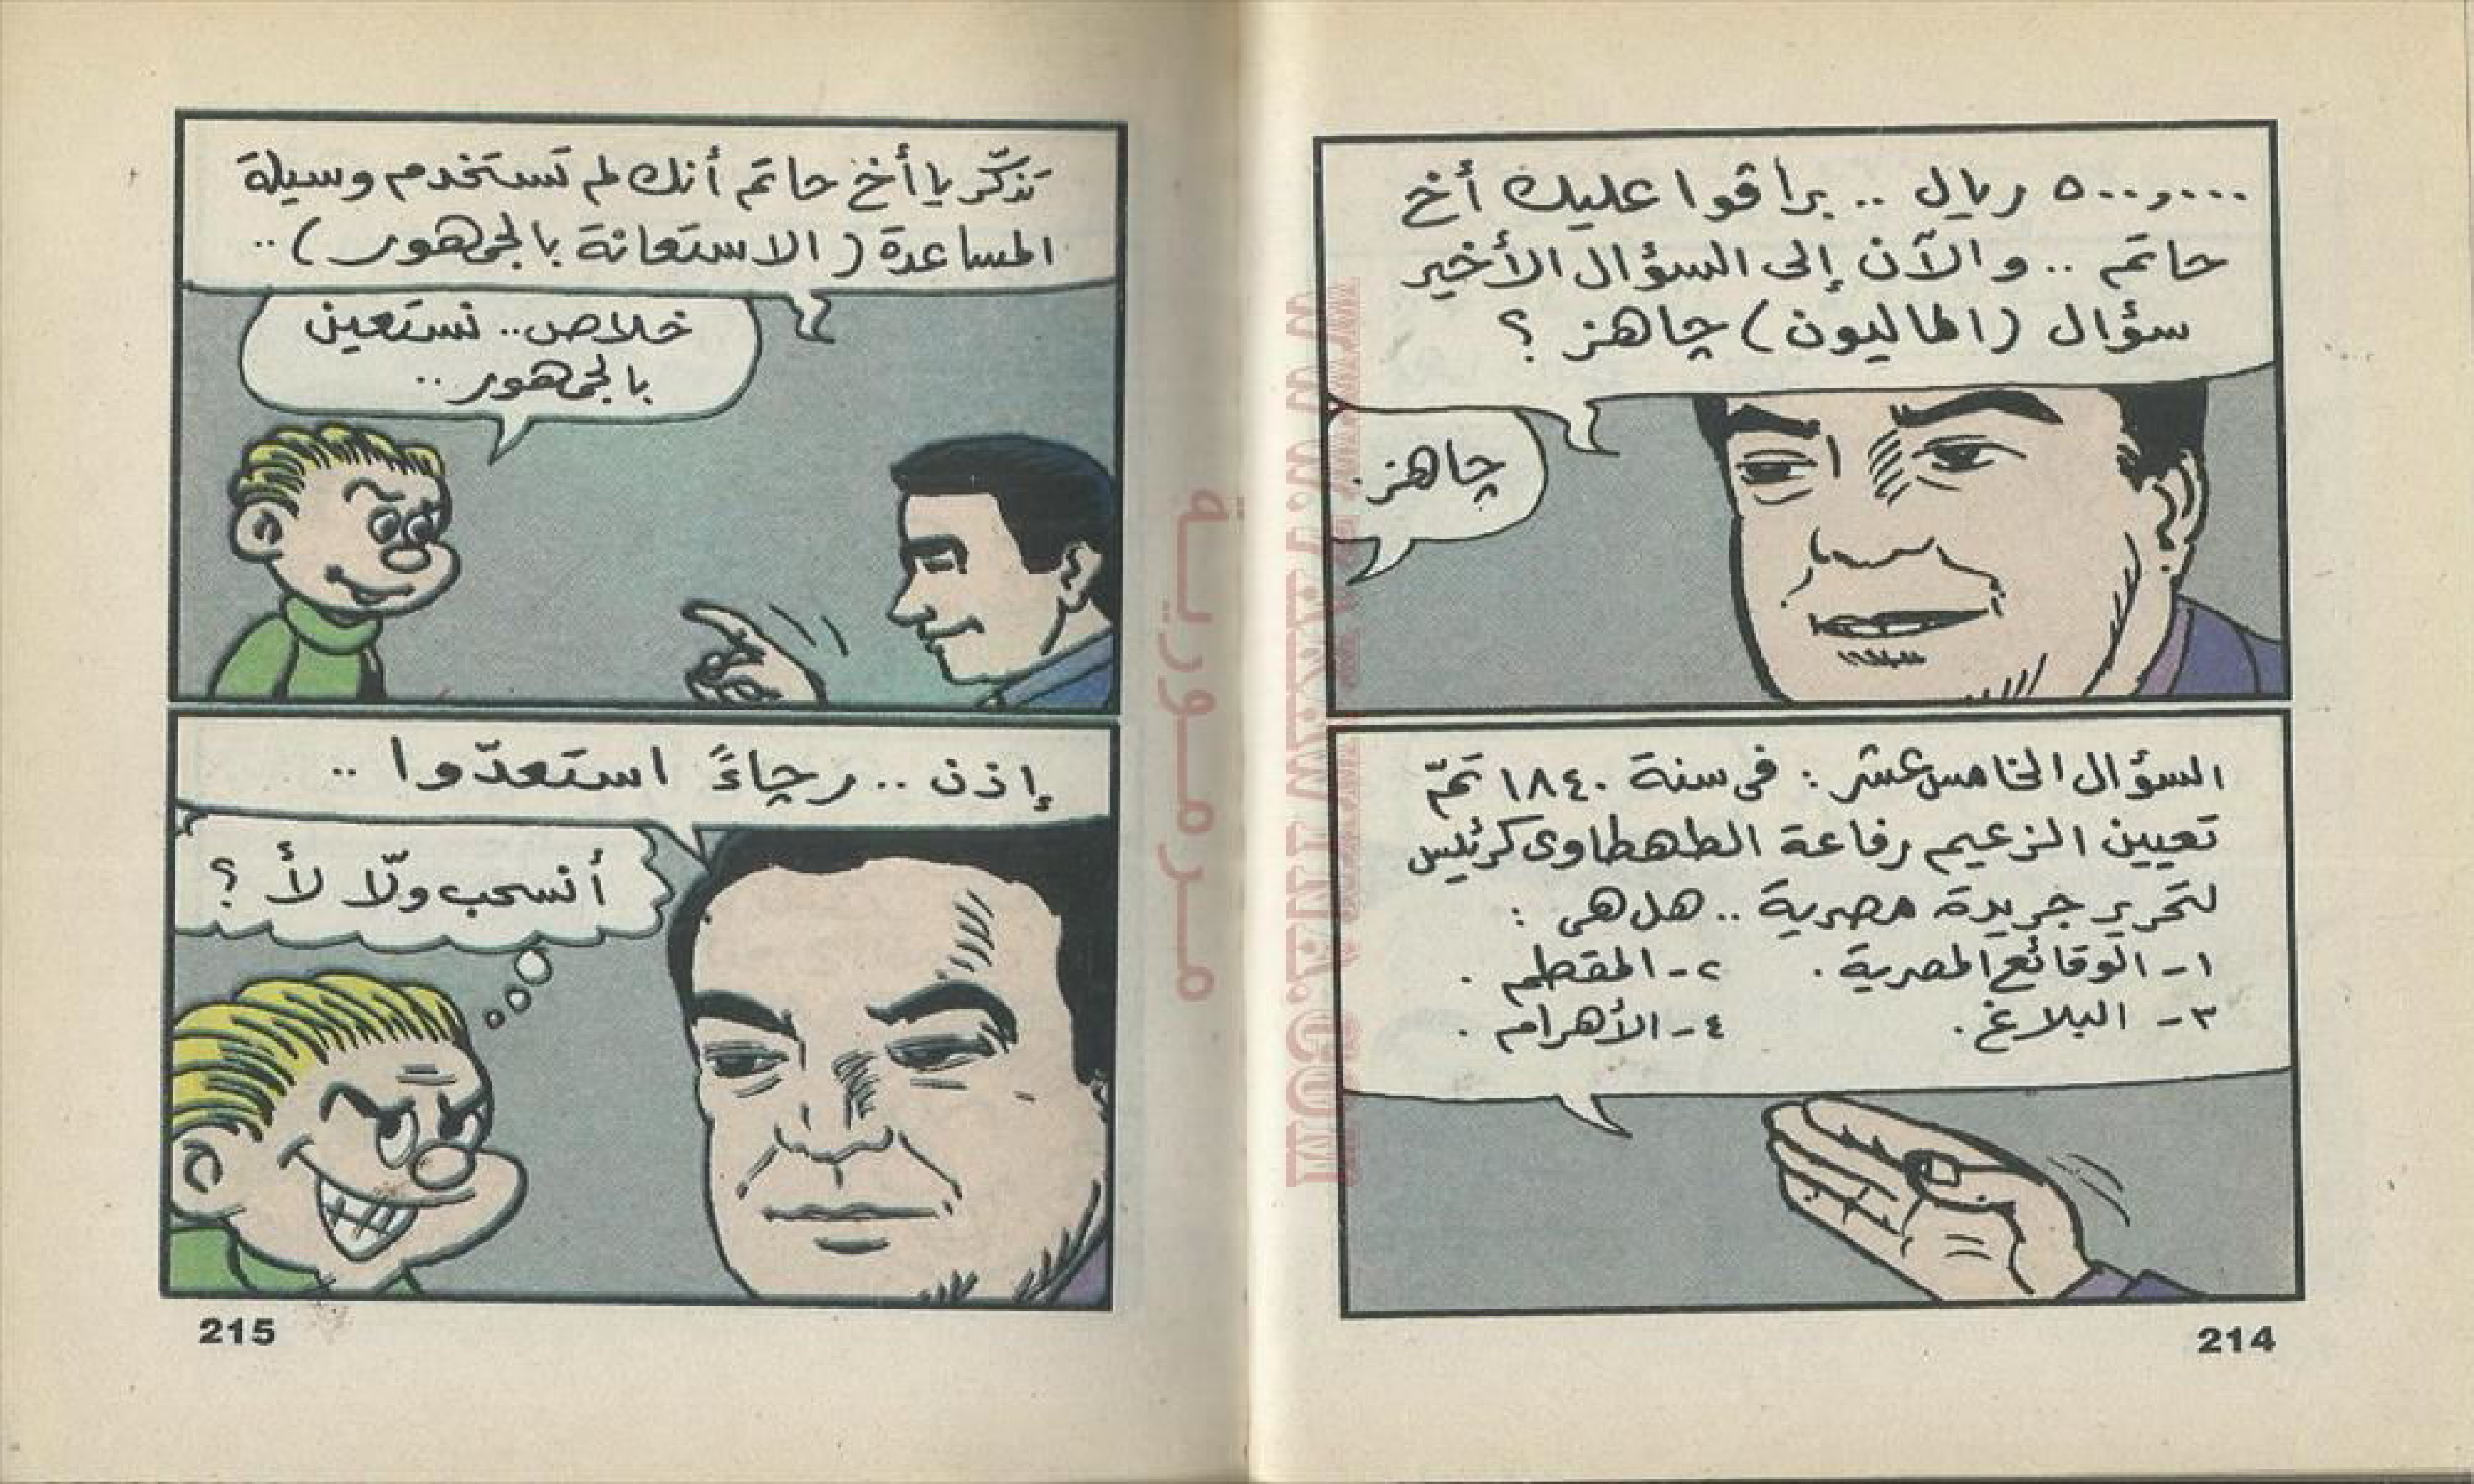 ٥٠٠,٠٠٠ ريال .. براڤوا عليك أخ
حاتم .. والآن إلى السؤال الأخير
سؤال (الماليون) چاهز ؟
چاهز.
السؤال الخامس عشر : فى سنة ١٨٤٠ تمّ
تعيين الزعيم رفاعة الطهطاوى كرئيس
لتحرير جريدة مصرية .. هل هى :
١- الوقائع المصرية . ٢- المقطم .
٣- البلاغ . ٤- الأهرام .
214
تذكّر يا أخ حاتم أنك لم تستخدم وسيلة
المساعدة (الاستعانة بالجمهور) ..
خلاص .. نستعين
بالجمهور ..
إذن .. رجاءً استعدّوا ..
أنسحب ولّا لأ ؟
215
مرمورية